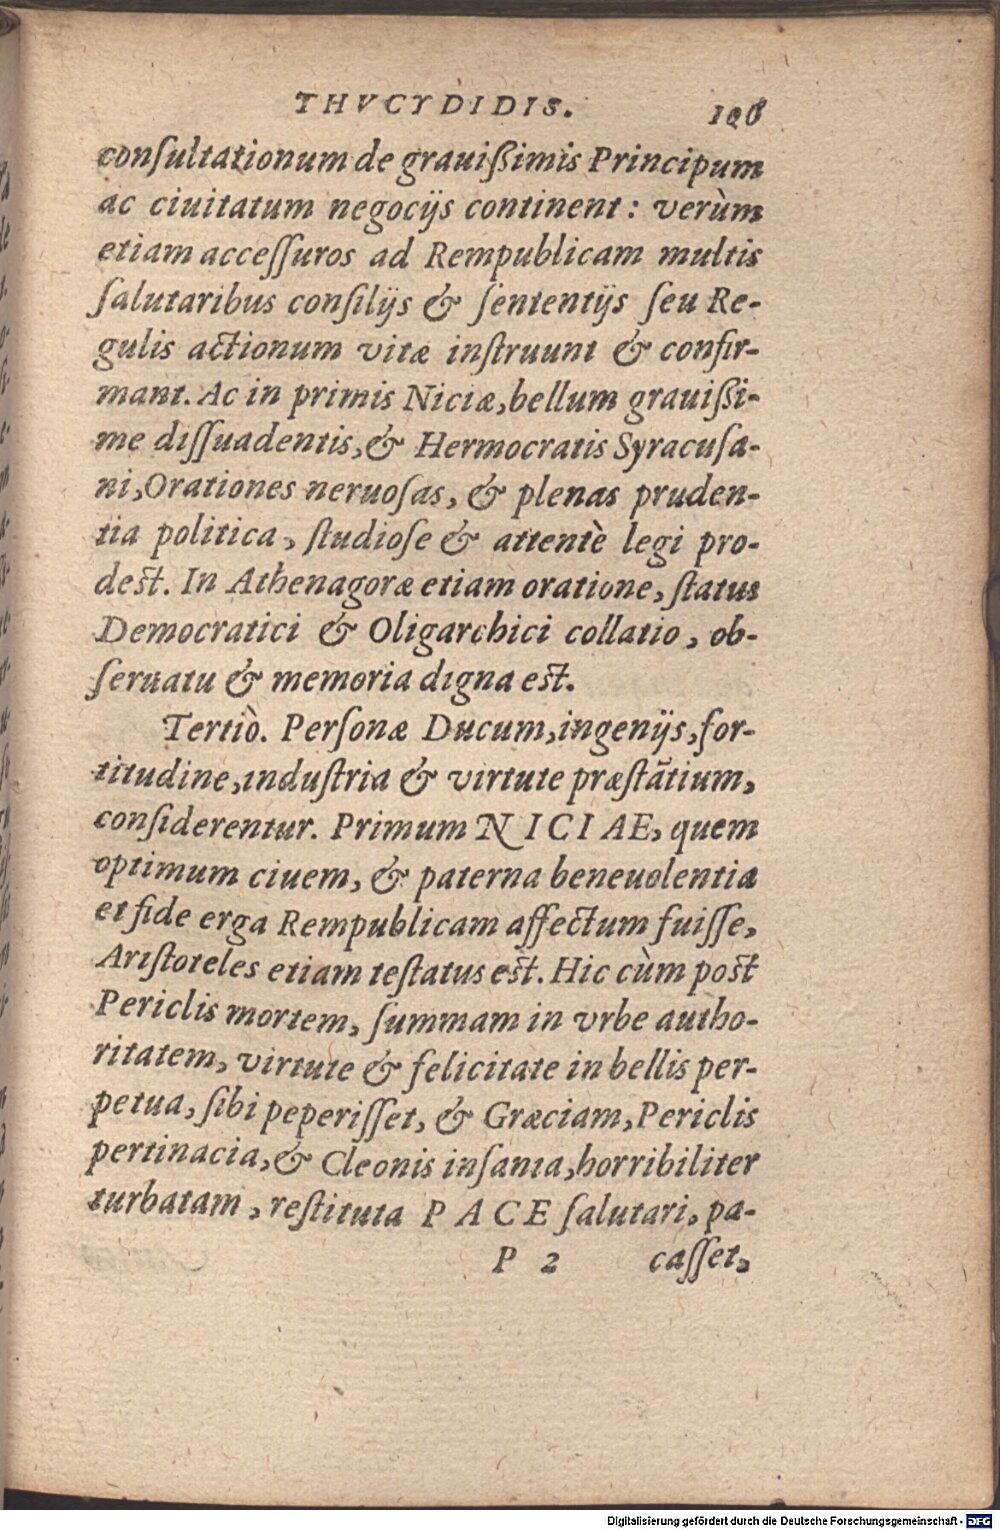 THVCYDIDIS. 106
conſultationum de grauiſſimis Principum
ac ciuitatum negocijs continent: verùm
etiam acceſſuros ad Rempublicam multis
ſalutaribus conſilijs & ſententijs ſeu Re-
gulis actionum vitæ inſtruunt & confir-
mant. Ac in primis Niciæ, bellum grauiſſi-
me diſſuadentis, & Hermocratis Syracuſa-
ni, Orationes neruoſas, & plenas pruden-
tia politica, ſtudioſe & attentè legi pro-
deſt. In Athenagoræ etiam oratione, ſtatus
Democratici & Oligarchici collatio, ob-
ſeruatu & memoria digna eſt.
Tertiò. Perſonæ Ducum, ingenijs, for-
titudine, induſtria & virtute præſtãtium,
conſiderentur. Primum NICIAE, quem
optimum ciuem, & paterna beneuolentia
et fide erga Rempublicam affectum fuiſſe,
Ariſtoteles etiam teſtatus eſt. Hic cùm poſt
Periclis mortem, ſummam in vrbe autho-
ritatem, virtute & felicitate in bellis per-
petua, ſibi peperiſſet, & Græciam, Periclis
pertinacia, & Cleonis inſania, horribiliter
turbatam, reſtituta PACE ſalutari, pa-
P 2 caſſet,
Digitalisierung gefördert durch die Deutsche Forschungsgemeinschaft - DFG